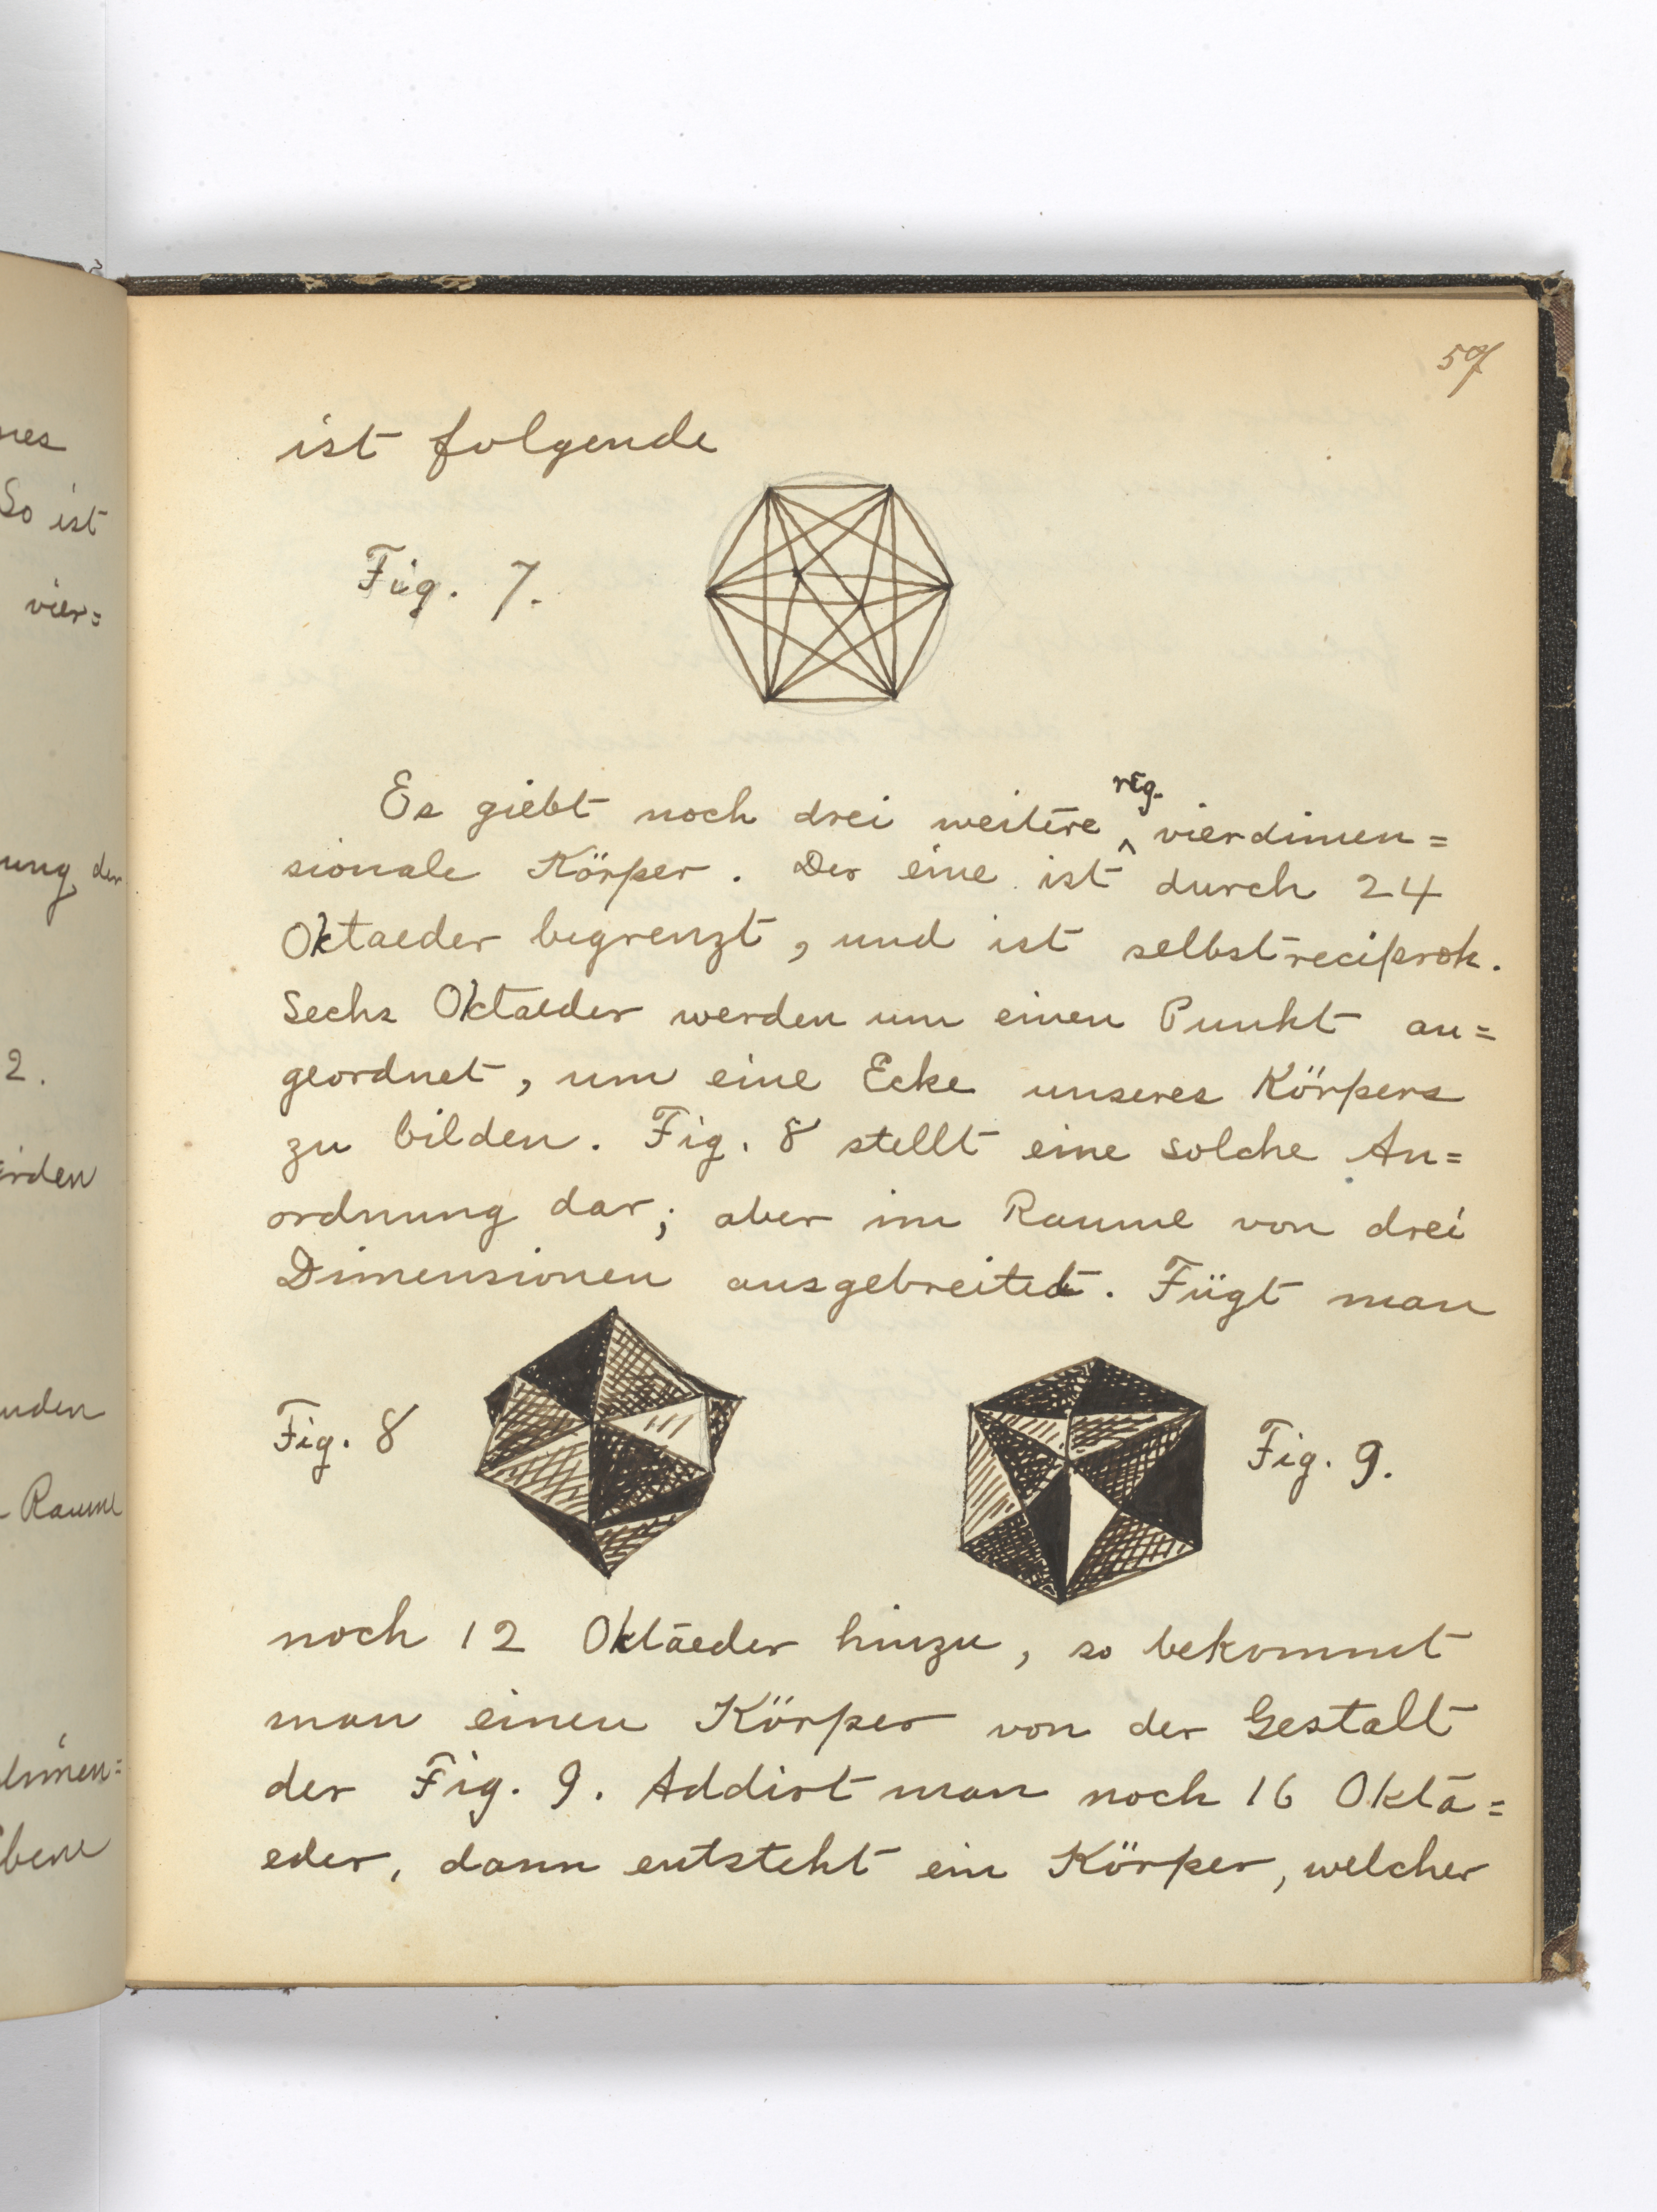 57
ist folgende
Fig. 7.
Es giebt noch drei weitere reg. vierdimen=
sionale Körper. Der eine ist durch 24
Oktaeder begrenzt, und ist selbstreciprok.
Sechs Oktaeder werden um einen Punkt an=
geordnet, um eine Ecke unseres Körpers
zu bilden. Fig. 8 stellt eine solche An=
ordnung dar; aber im Raume von drei
Dimensionen ausgebreitet. Fügt man
Fig. 8
Fig. 9.
noch 12 Oktaeder hinzu, so bekommt
man einen Körper von der Gestalt
der Fig. 9. Addirt man noch 16 Okta=
eder, dann entsteht ein Körper, welcher
nes
So ist
vier=
ung der
2.
Raume